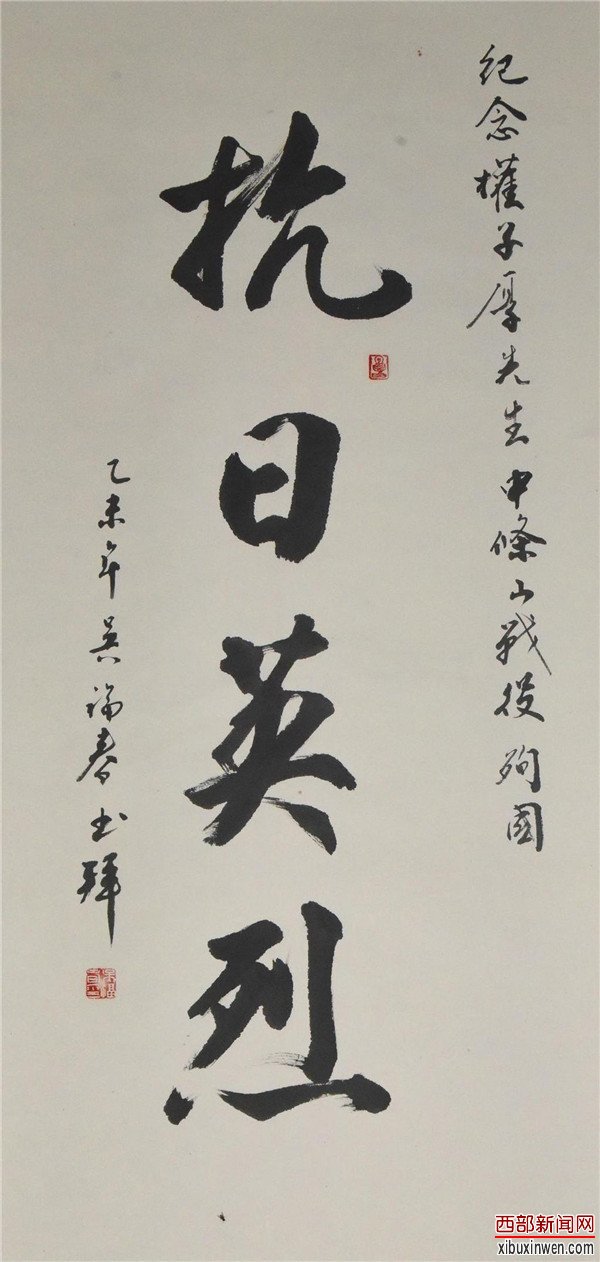 紀念權子厚先生中條山戰役殉國
抗日英烈
乙未年吳福春书拜
西部新闻网
xibuxinwen.com